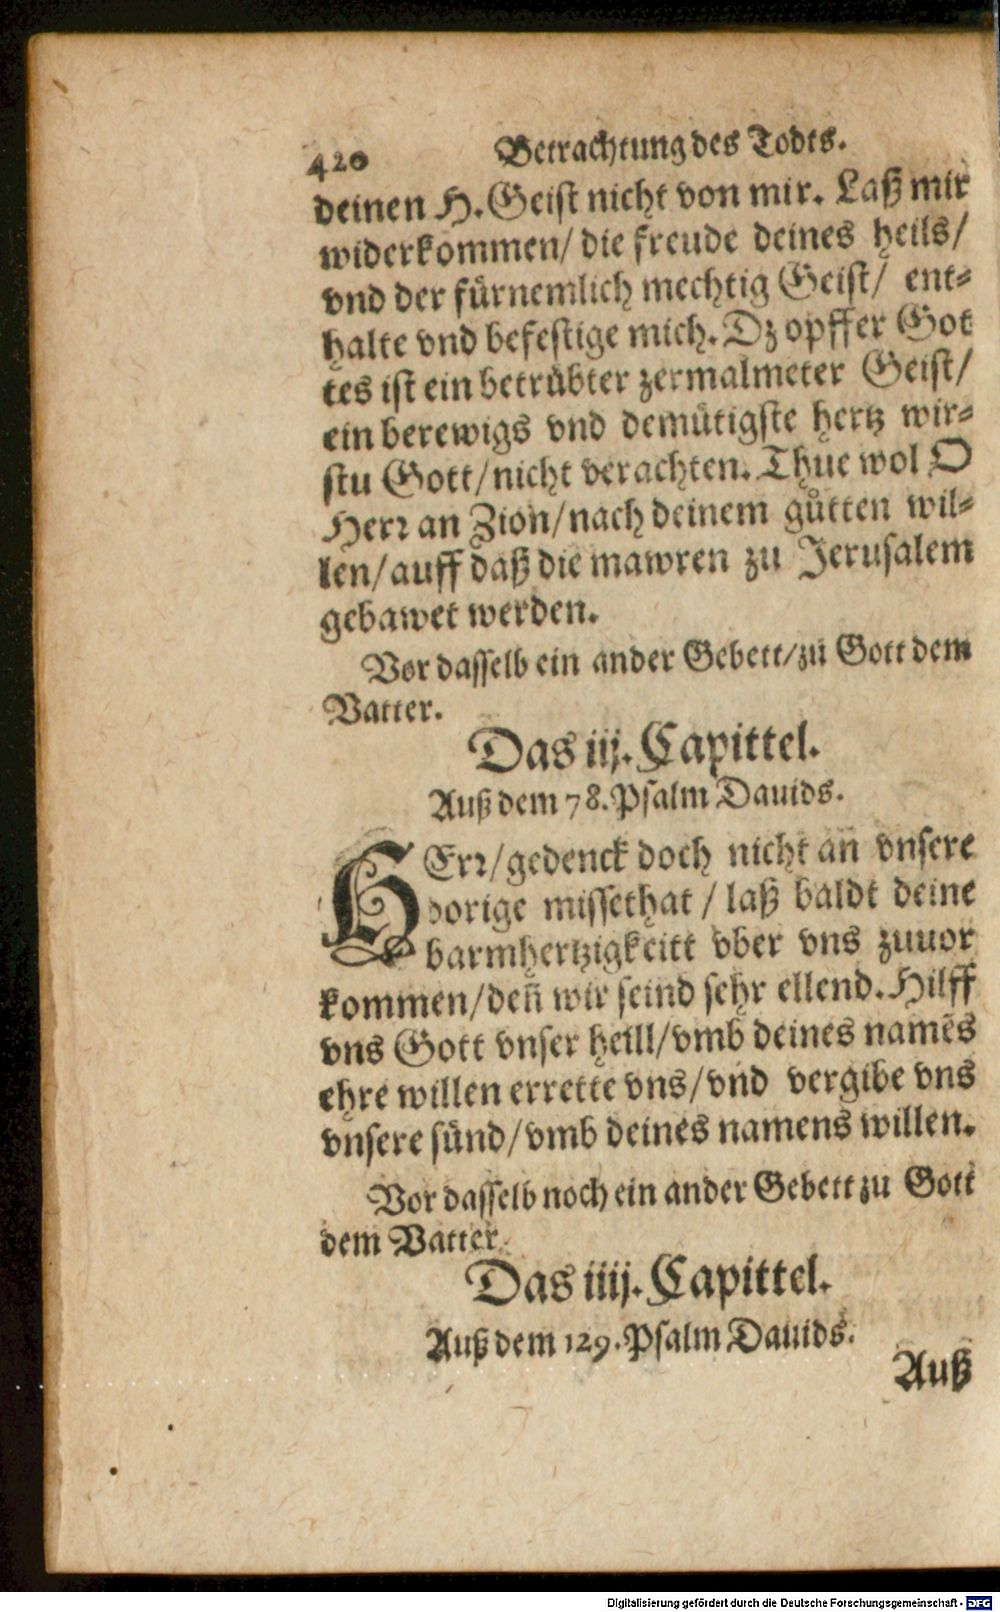 420 Betrachtung des Todts.
deinen H. Geist nicht von mir. Laß mir
widerkommen/ die freude deines heils/
vnd der fürnemlich mechtig Geist/ ent-
halte vnd befestige mich. Dz opffer Got
tes ist ein betrübter zermalmeter Geist/
ein berewigs vnd demütigste hertz wir-
stu Gott/nicht verachten. Thue wol O
Herr an Zion/nach deinem gütten wil-
len/auff daß die mawren zu Jerusalem
gebawet werden.
Vor dasselb ein ander Gebett/zu Gott dem
Vatter.
Das iij. Capittel.
Auß dem 78. Psalm Dauids.
HErr/gedenck doch nicht an vnsere
vorige missethat / laß baldt deine
barmhertzigkeitt vber vns zuuor
kommen/deñ wir seind sehr ellend. Hilff
vns Gott vnser heill/vmb deines namẽs
ehre willen errette vns/vnd vergibe vns
vnsere sünd/vmb deines namens willen.
Vor dasselb noch ein ander Gebett zu Gott
dem Vatter.
Das iiij. Capittel.
Auß dem 129. Psalm Dauids.
Auß
Digitalisierung gefördert durch die Deutsche Forschungsgemeinschaft - DFG